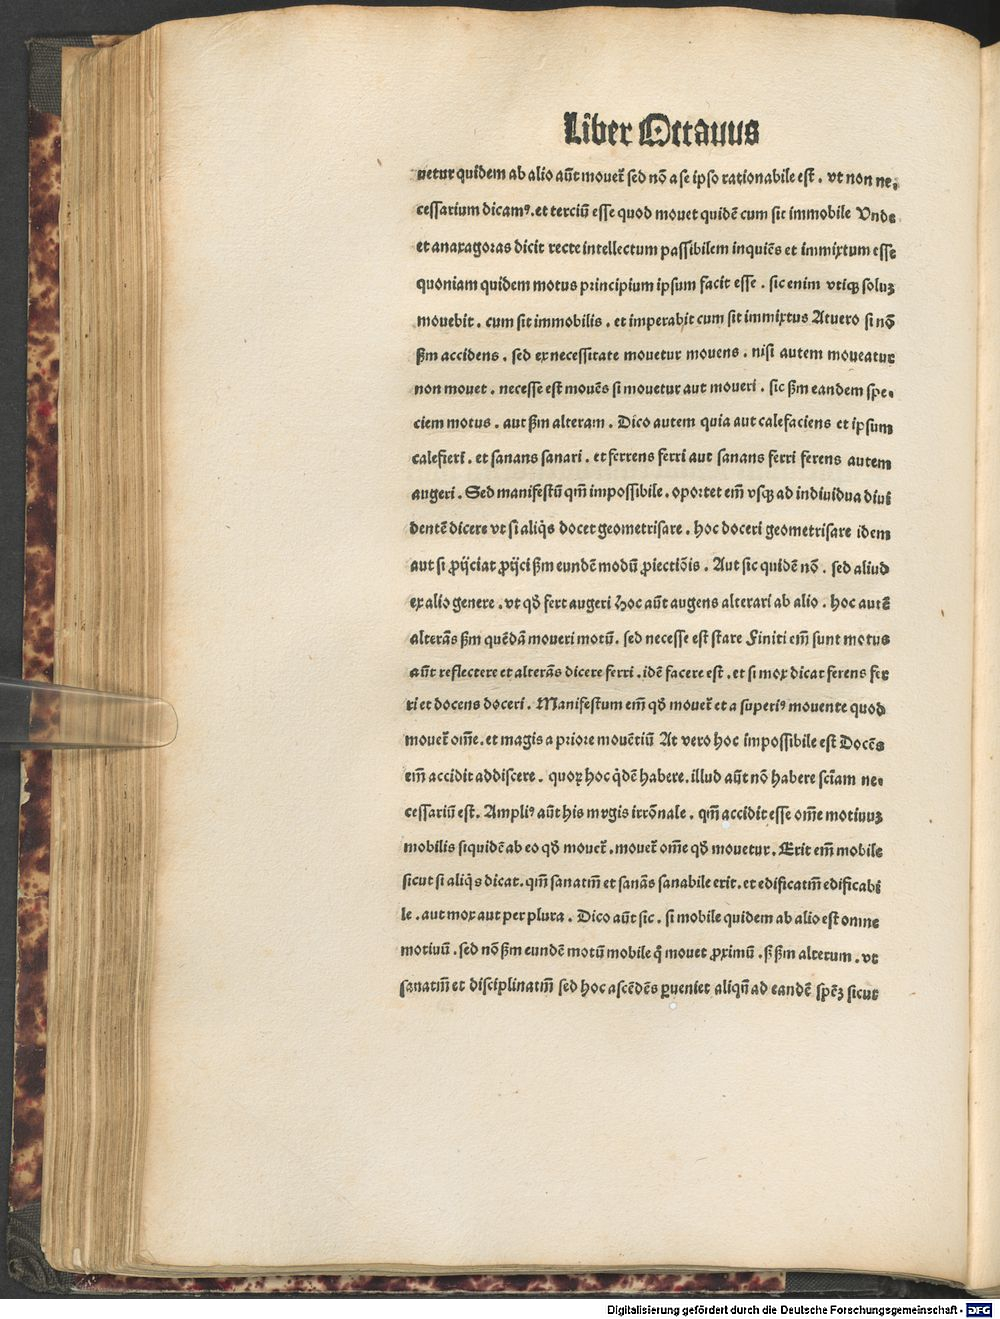 Liber Octauus
uetur quidem ab alio aūt mouet᷑ sed nō a se ipso rationabile est . vt non ne⸗
cessarium dicamꝰ . et terciū esse quod mouet quidē cum sit immobile Vnde
et anaxagoras dicit recte intellectum passibilem inquiēs et immixtum esse
quoniam quidem motus principium ipsum facit esse . sic enim vtiqꝫ soluꝫ
mouebit . cum sit immobilis . et imperabit cum sit immixtus At uero si nō
ẜm accidens . sed ex necessitate mouetur mouens . nisi autem moueatur
non mouet . necesse est mouēs si mouetur aut moueri . sic ẜm eandem spe⸗
ciem motus . aut ẜm alteram . Dico autem quia aut calefaciens et ipsum
calefieri . et sanans sanari . et ferrens ferri aut sanans ferri ferens autem
augeri . Sed manifestū qm̄ impossibile . oportet em̄ vsqꝫ ad indiuidua diui
dentē dicere vt si aliq̇s docet geometrisare . hoc doceri geometrisare idem
aut si ꝓijciat ꝓijci ẜm eundē modū ꝓiectiōis . Aut sic quidē nō . sed aliud
ex alio genere . vt qd̄ fert augeri Hoc aūt augens alterari ab alio . hoc autē
alterās ẜm quēdā moueri motū . sed necesse est stare Finiti em̄ sunt motus
aūt reflectere et alterās dicere ferri . idē facere est . et si mox dicat ferens fer
ri et docens doceri . Manifestum em̄ qd̄ mouet᷑ et a superiꝰ mouente quod
mouet᷑ om̄e . et magis a priore mouētiū At vero hoc impossibile est Docēs
em̄ accidit addiscere . quoꝝ hoc q̇dē habere . illud aūt nō habere sciam ne⸗
cessariū est . Ampliꝰ aūt his mrgis irrōnale . qm̄ accidit esse om̄e motiuuꝫ
mobilis siquidē ab eo qd̄ mouet᷑ . mouet᷑ om̄e qd̄ mouetur . Erit em̄ mobile
sicut si aliq̇s dicat . qm̄ sanatm̄ et sanās sanabile erit . et edificatm̄ edificabi
le . aut mox aut per plura . Dico aūt sic . si mobile quidem ab alio est omne
motiuū . sed nō ẜm eundē motū mobile q̇ mouet ꝓximū . ß ẜm alterum . vt
sanatm̄ et disciplinatm̄ sed hoc ascēdēs ꝑueniet aliqn̄ ad eandē spēꝫ sicut
Digitalisierung gefördert durch die Deutsche Forschungsgemeinschaft - DFG